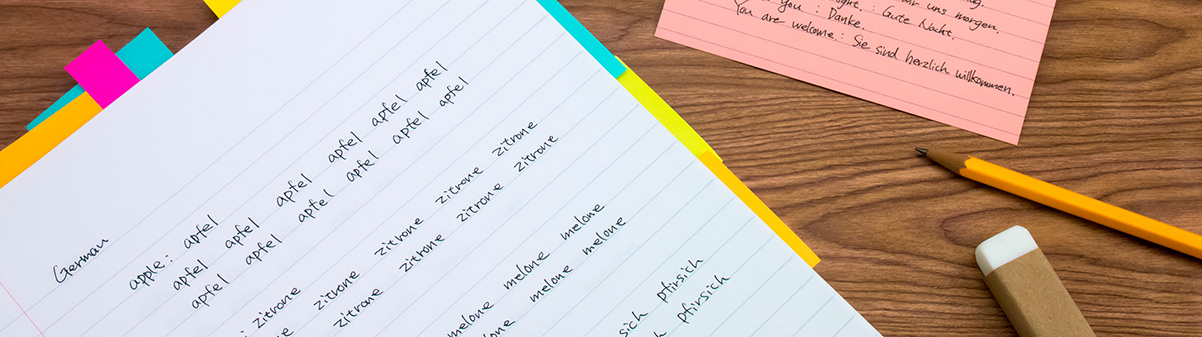 German
apple: apfel
apfel apfel apfel apfel apfel apfel
apfel apfel apfel apfel apfel apfel
zitrone
zitrone zitrone zitrone zitrone
zitrone zitrone zitrone zitrone
melone melone melone
melone melone melone
pfirsich
pfirsich
uns morgen.
: Gute Nacht.
you : Danke.
You are welcome : Sie sind herzlich willkommen.